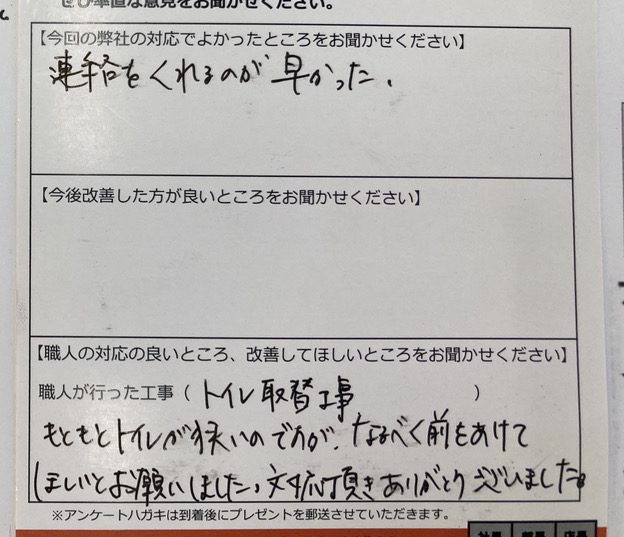 ぜひ率直な意見をお聞かせください。
【今回の弊社の対応でよかったところをお聞かせください】
連絡をくれるのが早かった。
【今後改善した方が良いところをお聞かせください】
【職人の対応の良いところ、改善してほしいところをお聞かせください】
職人が行った工事（ トイレ取替工事 ）
もともとトイレが狭いのですが、なるべく前をあけて
ほしいとお願いしました。対応頂きありがとうございました。
※アンケートハガキは到着後にプレゼントを郵送させていただきます。
社長 部長 店長